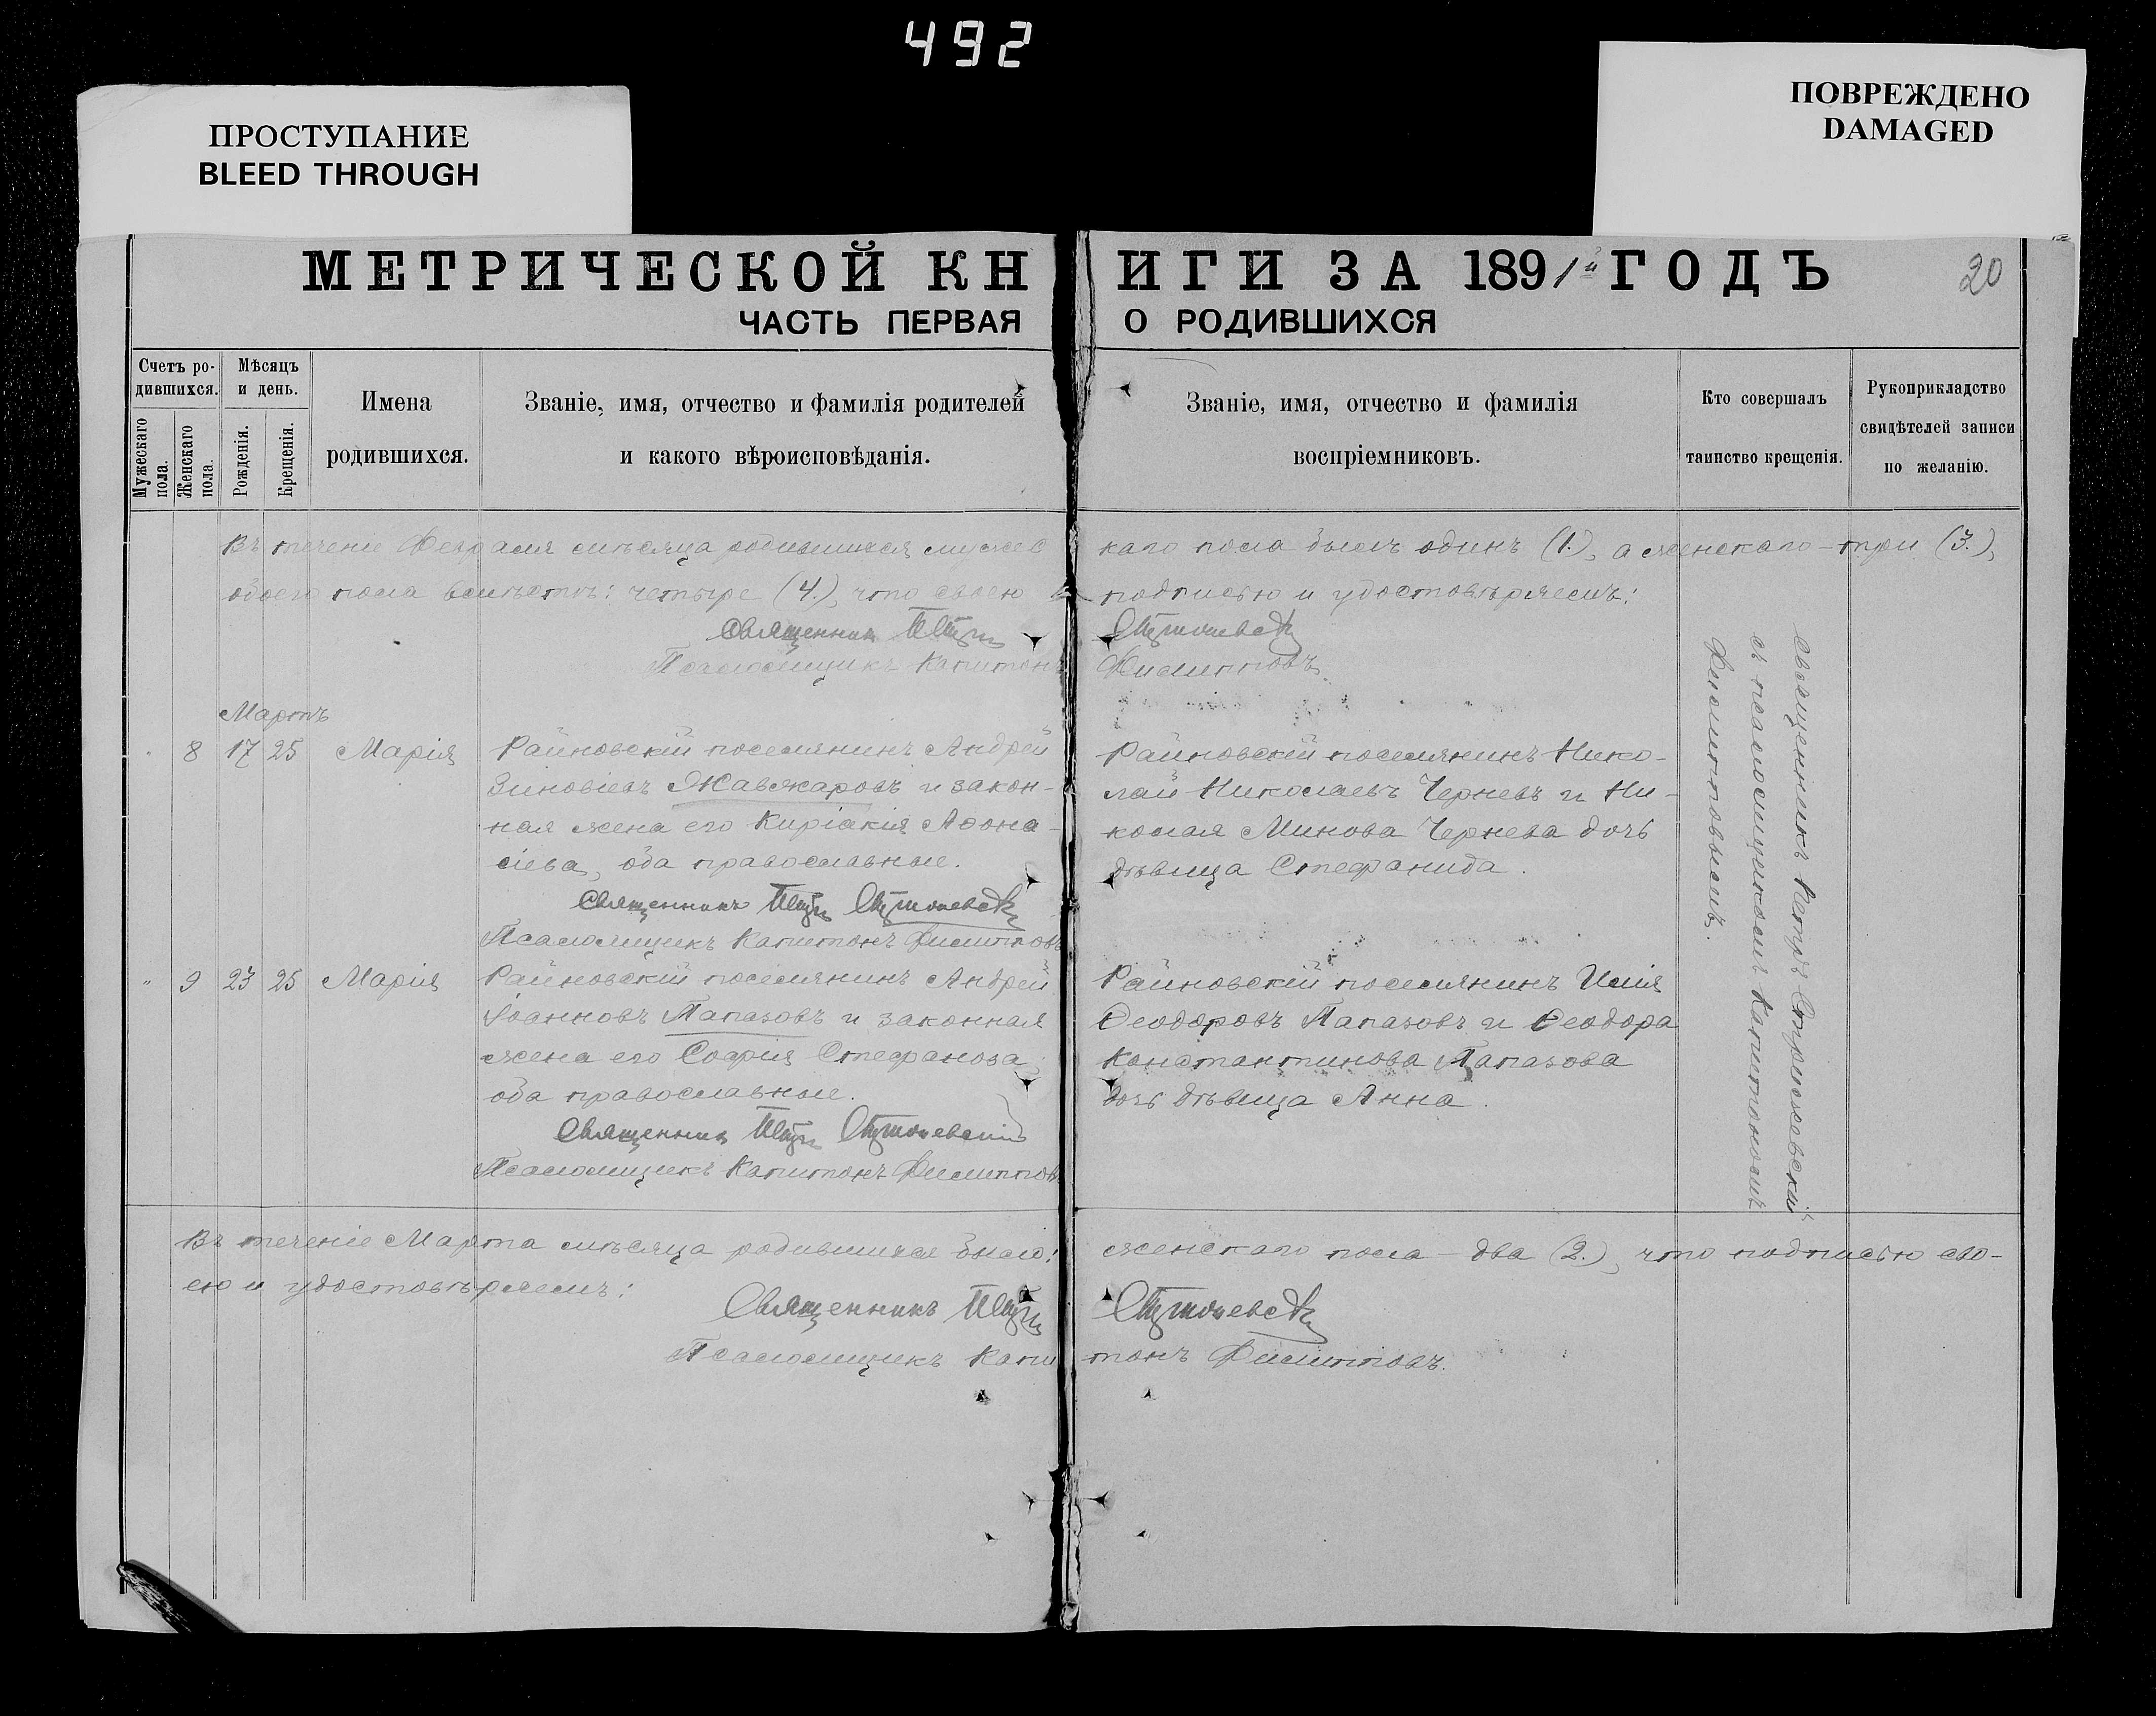 492
ПРОСТУПАНИЕ
BLEED THROUGH
ПОВРЕЖДЕНО
DAMAGED
МЕТРИЧЕСКОЙ КНИГИ ЗА 1891й ГОДЪ
20
ЧАСТЬ ПЕРВАЯ О РОДИВШИХСЯ
Счетъ ро-
дившихся.
Мужескаго
пола.
Женскаго
пола.
Мѣсяцъ
и день.
Рожденія.
Крещенія.
Имена
родившихся.
Званіе, имя, отчество и фамилія родителей
и какого вѣроисповѣданія.
Званіе, имя, отчество и фамилія
воспріемниковъ.
Кто совершалъ
таинство крещенія.
Рукоприкладство
свидѣтелей записи
по желанію.
Въ теченіе Февраля мѣсяца родившихся мужескаго пола былъ одинъ (1.), а женскаго – три (3.),
обоего пола вмѣстѣ: четыре (4.), что своею подписью и удостовѣряемъ:
Священникъ Петръ
Псаломщикъ Капитонъ Филипповъ.
Мартъ
" 8 17 25 Марія
Райновскій поселянинъ Андрей
Зиновіевъ Жавжаровъ и закон-
ная жена его Киріакія Аѳона-
сіева, оба православные.
Священникъ Петръ
Псаломщикъ Капитонъ Филипповъ
Райновскій поселянинъ Нико-
лай Николаевъ Черневъ и Ни-
колая Минова Чернева дочь
дѣвица Стефанида.
" 9 23 25 Марія
Райновскій поселянинъ Андрей
Іоанновъ Папазовъ и законная
жена его Софія Стефанова,
оба православные.
Священникъ Петръ
Псаломщикъ Капитонъ Филипповъ
Райновскій поселянинъ Илія
Ѳеодоровъ Папазовъ и Ѳеодора
Константинова Папазова
дочь дѣвица Анна.
Священникъ Петръ
съ псаломщикомъ Капитономъ
Филипповымъ.
Въ теченіе Марта мѣсяца родившихся было: женскаго пола – два (2.), что подписью сво-
ею и удостовѣряемъ:
Священникъ Петръ
Псаломщикъ Капитонъ Филипповъ.